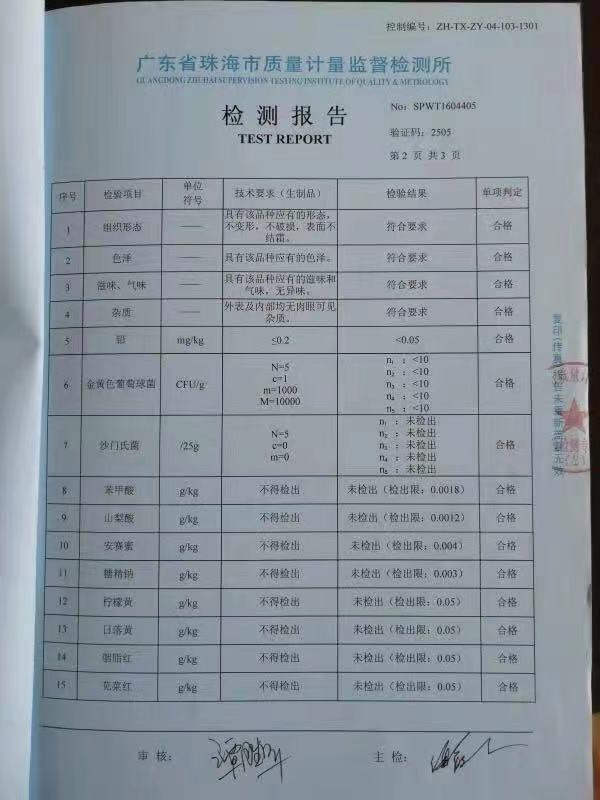 控制编号：ZH-TX-ZY-04-103-1301
广东省珠海市质量计量监督检测所
GUANGDONG ZHUHAI SUPERVISION TESTING INSTITUTE OF QUALITY & METROLOGY
检测报告
TEST REPORT
No: SPWT1604405
验证码：2505
第 2 页 共 3 页
序号 检验项目 单位符号 技术要求（生制品） 检验结果 单项判定
1 组织形态 —— 具有该品种应有的形态，不变形，不破损，表面不结霜。 符合要求 合格
2 色泽 —— 具有该品种应有的色泽。 符合要求 合格
3 滋味、气味 —— 具有该品种应有的滋味和气味，无异味。 符合要求 合格
4 杂质 —— 外表及内部均无肉眼可见杂质。 符合要求 合格
5 铅 mg/kg ≤0.2 <0.05 合格
6 金黄色葡萄球菌 CFU/g N=5 c=1 m=1000 M=10000 n₁：<10 n₂：<10 n₃：<10 n₄：<10 n₅：<10 合格
7 沙门氏菌 /25g N=5 c=0 m=0 n₁：未检出 n₂：未检出 n₃：未检出 n₄：未检出 n₅：未检出 合格
8 苯甲酸 g/kg 不得检出 未检出（检出限：0.0018） 合格
9 山梨酸 g/kg 不得检出 未检出（检出限：0.0012） 合格
10 安赛蜜 g/kg 不得检出 未检出（检出限：0.004） 合格
11 糖精钠 g/kg 不得检出 未检出（检出限：0.003） 合格
12 柠檬黄 g/kg 不得检出 未检出（检出限：0.05） 合格
13 日落黄 g/kg 不得检出 未检出（检出限：0.05） 合格
14 胭脂红 g/kg 不得检出 未检出（检出限：0.05） 合格
15 苋菜红 g/kg 不得检出 未检出（检出限：0.05） 合格
审 核：
主 检：